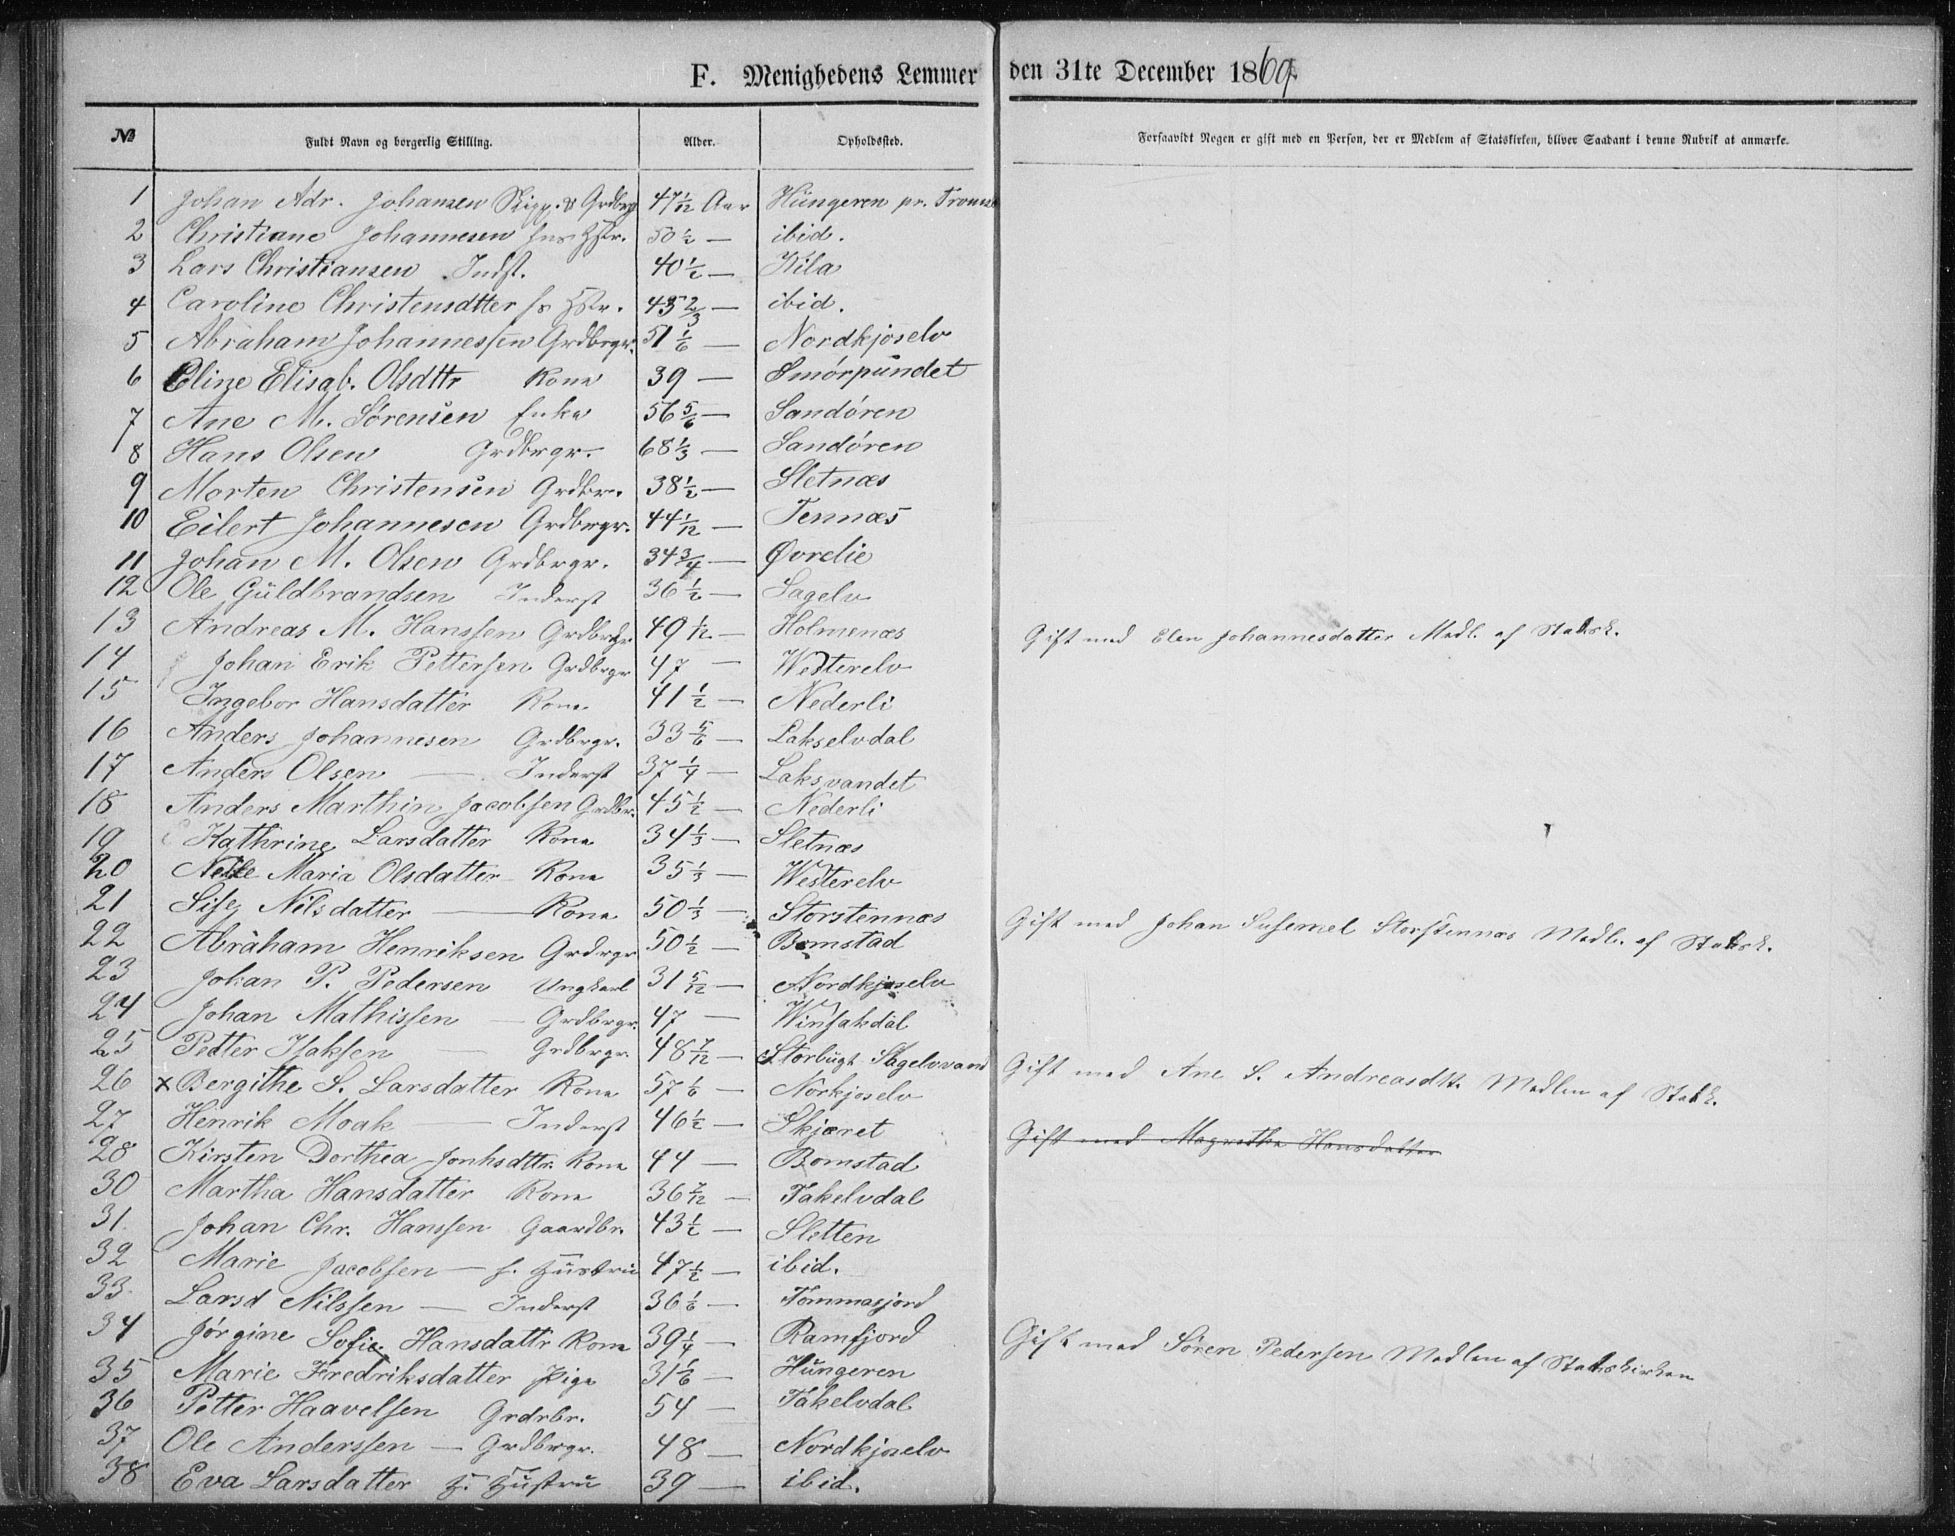 F. Menighedens Lemmer den 31te December 1869.
№ Fuldt Navn og borgerlig Stilling. Alder. Opholdssted. Forsaavidt Nogen er gift med en Person, der er Medlem af Statskirken, bliver Saadant i denne Rubrik at anmærke.
1 Johan Adr. Johansen Skipp. & Grdbrgr 47 1/12 Aar Hüngeren pr. Tromsø
2 Christiane Johannesen hns Hstr. 50 1/2 — ibid.
3 Lars Christiansen Indst. 40 1/2 — Kila
4 Caroline Christensdtter hs Hstr. 43 2/3 — ibid.
5 Abraham Johannessen Grdbrgr. 51 1/6 — Nordkjoselv
6 Eline Elisab. Olsdttr Kone 39 — Smörpundet
7 Ane M. Sørensen Enke 56 5/6 — Sandóren
8 Hans Olsen Grdbrgr. 68 1/3 — Sandóren
9 Morten Christensen Grdbr. 38 1/2 — Sletnæs
10 Eilert Johannesen Grdbrgr. 44 1/12 — Tennæs
11 Johan M. Olsen Grdbrgr. 34 3/4 — Øvrelie
12 Ole Güldbrandsen Inderst 36 1/2 — Sagelv
13 Andreas M. Hanssen Grdbrgr 49 1/12 — Holmenæs Gift med Elen Johannesdatter Medl. af Statsk.
14 Johan Erik Pettersen Grdbrgr 47 — Westerelv
15 Ingebor Hansdatter Kone 41 1/2 — Nederli
16 Anders Johannesen Grdbrgr. 33 5/6 — Lakselvdal
17 Anders Olsen — Inderst 37 1/4 — Laksvandet
18 Anders Marthin Jacobsen Grdbr. 45 1/2 — Nederli
19 Kathrine Larsdatter Kone 34 1/3 — Sletnæs
20 Nelle Maria Olsdatter Kone 35 1/3 — Westerelv
21 Sise Nilsdatter — Kone 50 1/3 — Storstennæs Gift med Johan Susemel Storstennæs Medl. af Statsk.
22 Abraham Henriksen Grdrgr 50 1/2 — Bomstad
23 Johan P. Pedersen Ungkarl 31 5/12 — Nordkjoselv
24 Johan Mathissen — Grdbrgr. 47 — Winsakdal
25 Petter Isaksen — Grdbrgr. 48 7/12 — Storbugt Sagelvvand Gift med Ane S. Andreasdtt. Medlem af Statsk.
26 x Bergithe S. Larsdatter Kone 57 1/6 — Norkjoselv
27 Henrik Moak — Inderst 46 1/2 — Skjæret Gift med Magrethe Hansdatter
28 Kirsten Dorthea Jonhsdttr. Kone 44 — Bomstad
30 Martha Hansdatter Kone 36 7/12 — Takelvdal
31 Johan Chr. Hanssen Gaardbr. 43 1/2 — Sletten
32 Marie Jacobsen — h. Hüstrü 47 1/2 — ibid.
33 Larsd Nilssen — Inderst 36 1/6 — Tommasjord
34 Jørgine Sofie Hansdattr Kone 39 1/4 — Ramfjord Gift med Søren Pedersen Medlem af Statskirken
35 Marie Fredriksdatter Pige 31 1/6 — Hüngeren
36 Petter Haavelsen Grdrbr. 54 — Takelvdal
37 Ole Anderssen — Grdbrgr. 48 — Nordkjoselv
38 Eva Larsdatter H. Hüstrü 39 — ibid.